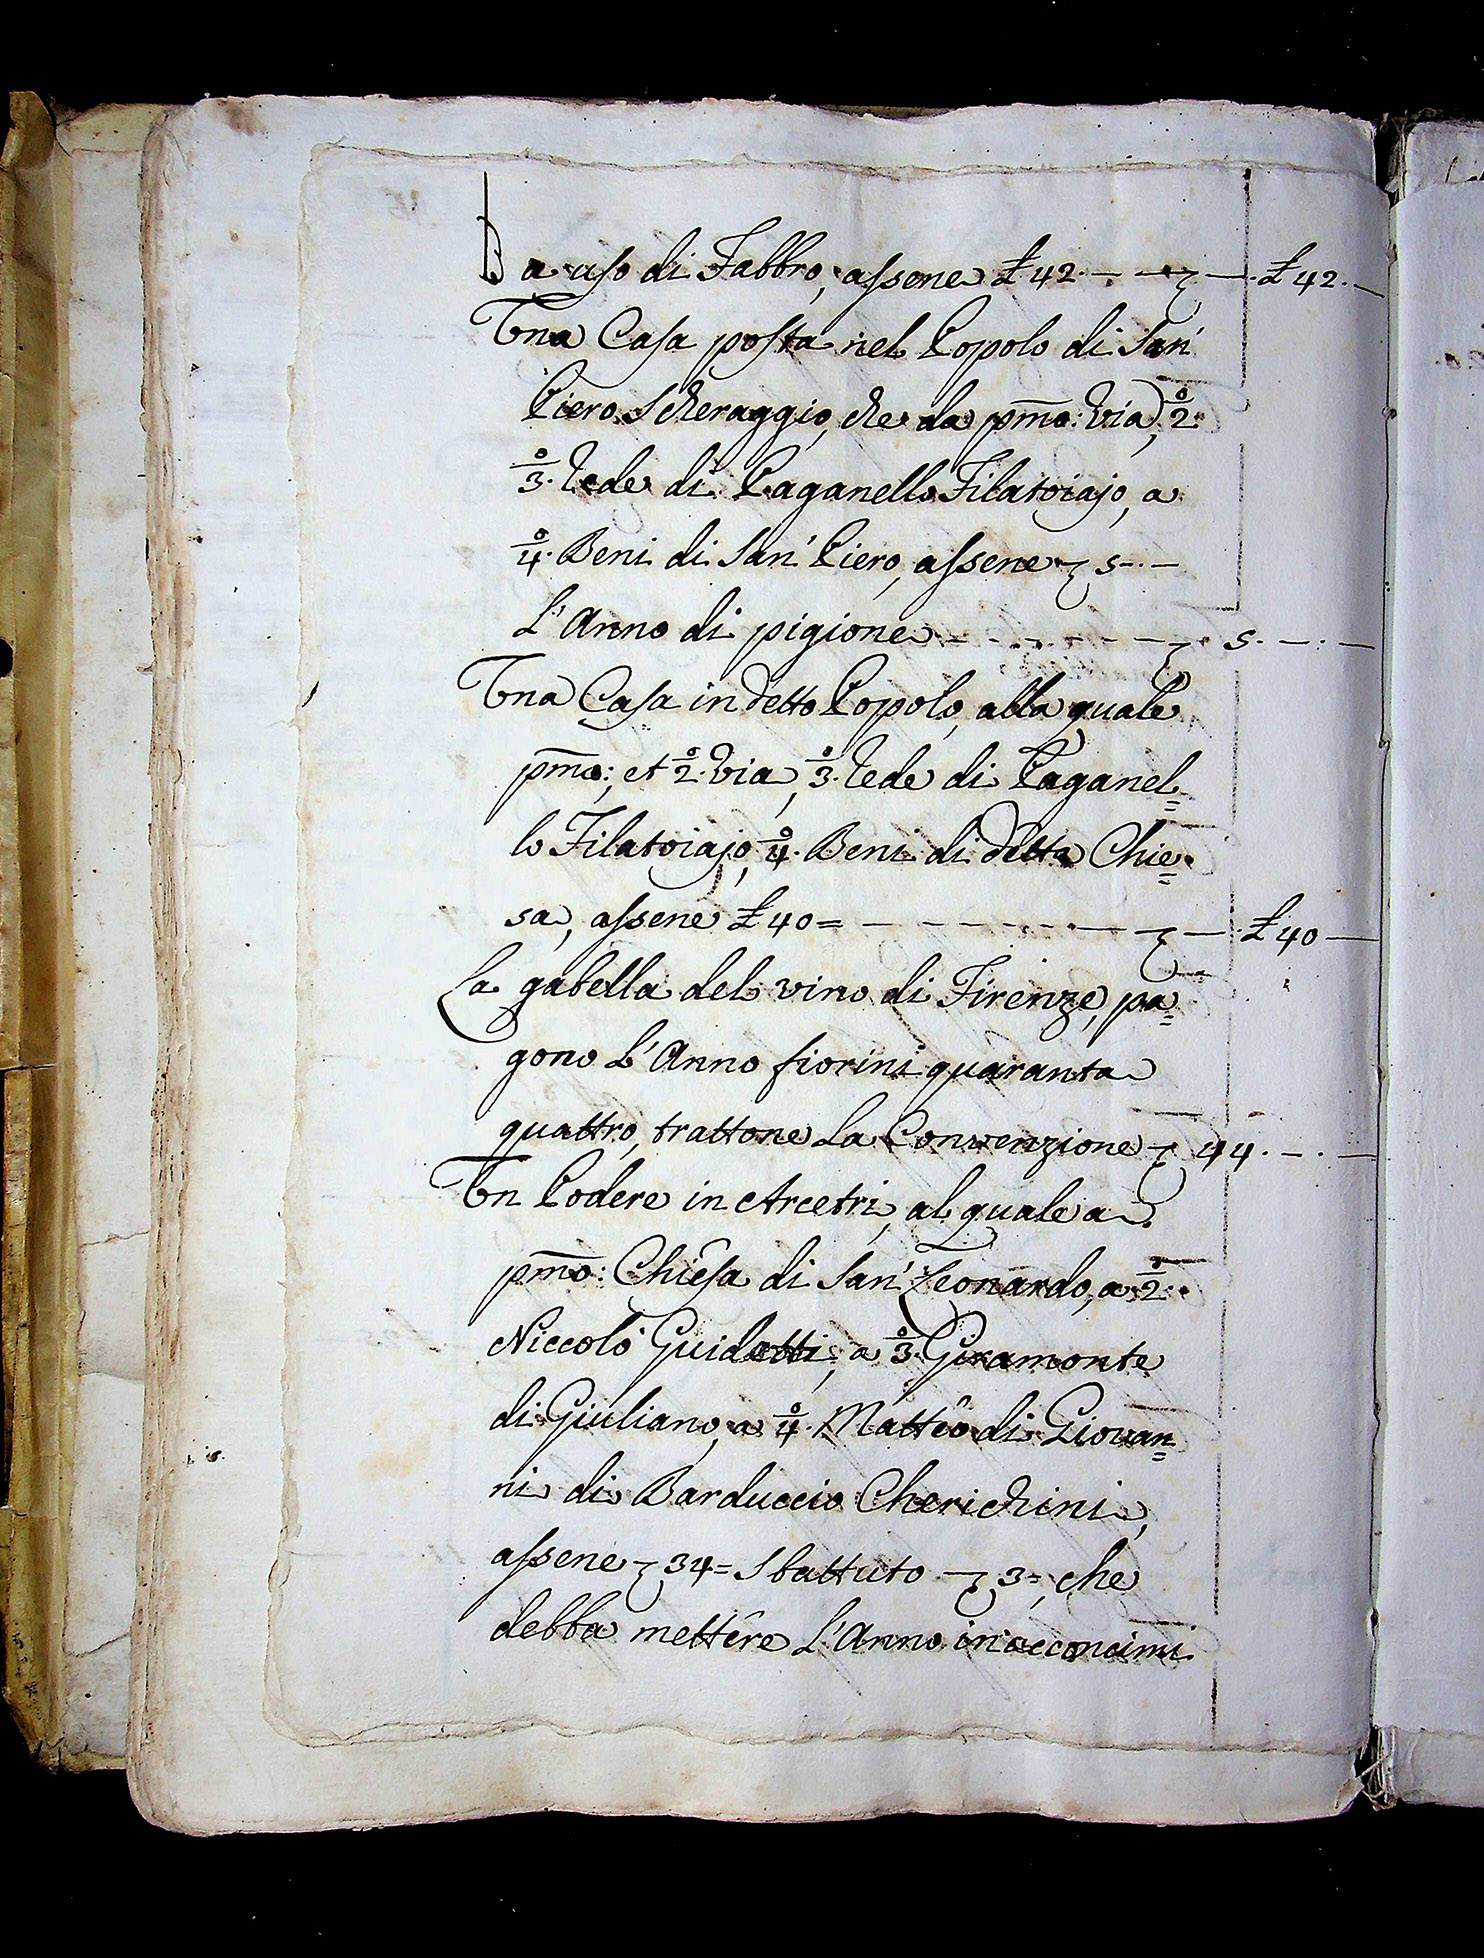 a uso di Fabbro, assene £ 42. — £ 42. —
Una Casa posta nel Popolo di San
Piero Scheraggio, che da pmo: Via, 2º
3º. Rede di Paganello Filatoiajo, a
4º. Beni di San Piero, assene 5. —
L'Anno di pigione — 5. —
Una Casa in detto Popolo, alla quale
pmo:, et 2º. Via, 3º. Rede di Paganel=
lo Filatoiajo, 4º. Beni di detta Chie=
sa, assene £ 40 = — £ 40 —
La gabella del vino di Firenze, pa=
gono L'Anno fiorini quaranta
quattro, trattone La Convenzione 44. —
Un Podere in Arcetri, al quale a
pmo: Chiesa di San Leonardo, a 2º.
Niccolò Guidetti, a 3º. Giramonte
di Giuliano, a 4º. Mattêo di Giovan=
ni di Barduccio Cherichini,
assene 34 = Sbattuto 3 =, che
debba mettêre L'Anno in acconcimi